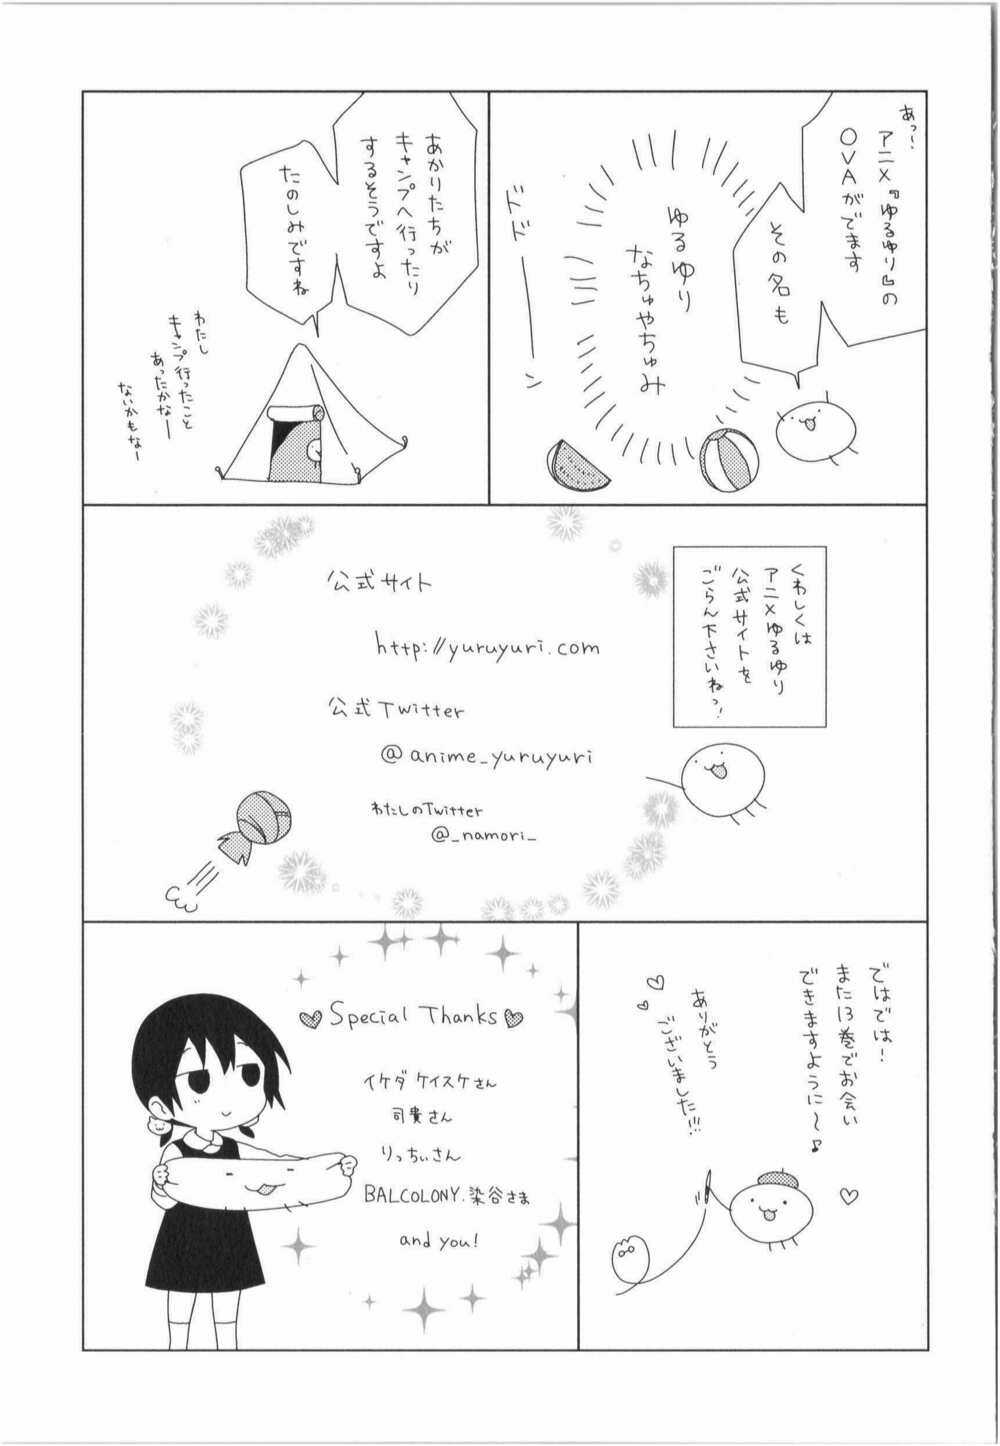 あっ!
アニメ『ゆるゆり』の
OVAがでます
その名も
ゆるゆり
なちゅやちゅみ
ドドーーン
あかりたちが
キャンプへ行ったり
するそうですよ
たのしみですね
わたし
キャンプ行ったこと
あったかなー
ないかもなー
くわしくは
アニメゆるゆり
公式サイトを
ごらん下さいねっ!
公式サイト
http://yuruyuri.com
公式Twitter
@anime_yuruyuri
わたしのTwitter
@_namori_
ではでは!
また13巻でお会い
できますように〜♪
ありがとう
ございました!!!
Special Thanks
イケダ ケイスケさん
司貴さん
りっちぃさん
BALCOLONY.染谷さま
and you!